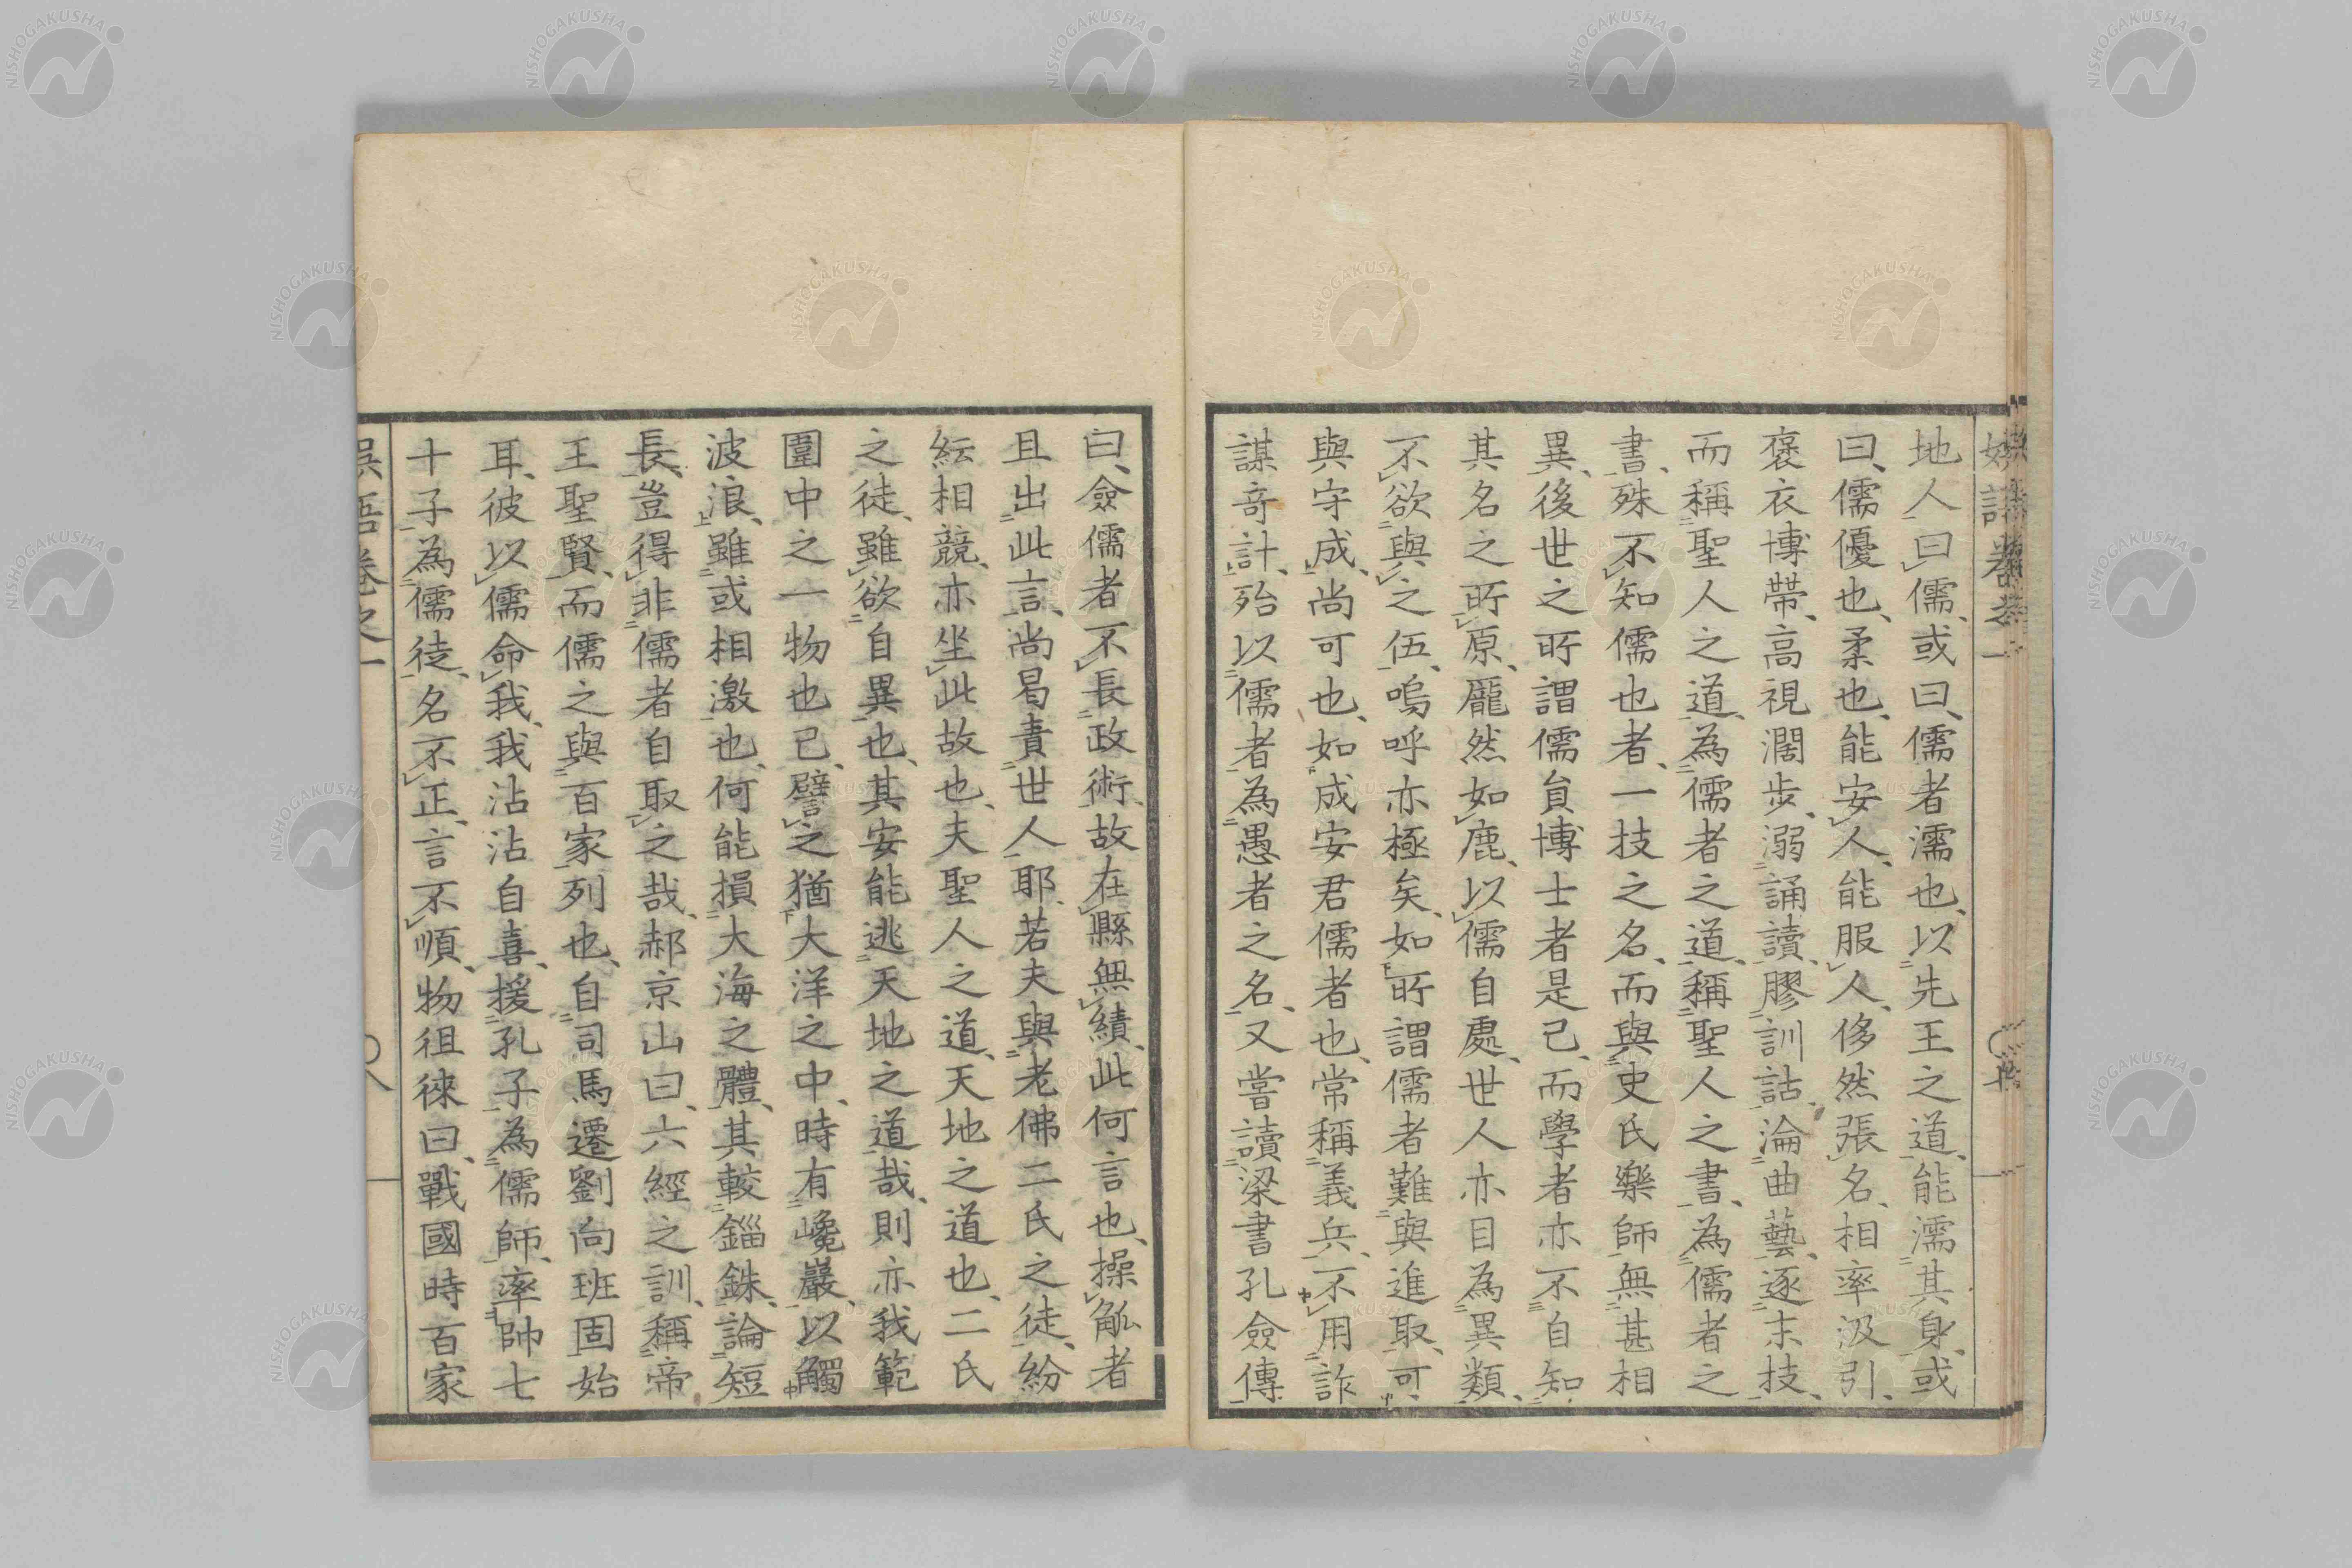 地人曰儒、或曰、儒者濡也、以先王之道、能濡其身、或
曰、儒優也、柔也、能安人、能服人、侈然張名、相率汲引、
褒衣博帶、高視濶步、溺誦讀、膠訓詁、淪曲藝、逐末技、
而稱聖人之道、為儒者之道、稱聖人之書、為儒者之
書、殊不知儒也者、一技之名、而與史氏樂師無甚相
異、後世之所謂儒貟博士者是已、而學者亦不自知
其名之所原、龐然如鹿、以儒自處、世人亦目為異類、
不欲與之伍、嗚呼亦極矣、如所謂儒者難與進取、可
與守成、尚可也、如成安君儒者也、常稱義兵、不用詐
謀奇計、殆以儒者為愚者之名、又嘗讀梁書孔僉傳
曰、僉儒者不長政術、故在縣無績、此何言也、操觚者
且出此言、尚曷責世人耶、若夫與老佛二氏之徒、紛
紜相競、亦坐此故也、夫聖人之道、天地之道也、二氏
之徒、雖欲自異也、其安能逃天地之道哉、則亦我範
圍中之一物也已、譬之猶大洋之中、時有巉巖、以觸
波浪、雖或相激也、何能損大海之體、其較錙銖、論短
長、豈得非儒者自取之哉、郝京山曰、六經之訓、稱帝
王聖賢、而儒之與百家列也、自司馬遷劉向班固始
耳、彼以儒命我、我沾沾自喜、援孔子為儒師、率帥七
十子為儒徒、名不正、言不順、物徂徠曰、戰國時百家
語卷之一